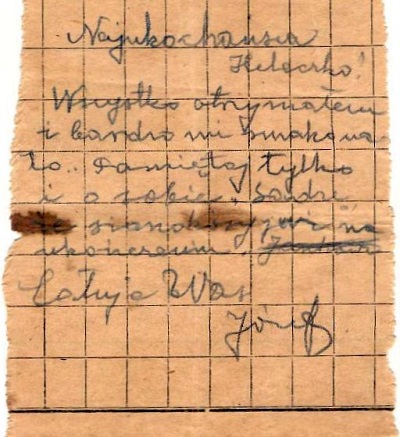 Najukochańsza
Heleczko!
Wszystko otrzymałem
i bardzo mi smakowa-
ło. Pamiętaj tylko
i o sobie, Sądzę,
że sianokosy już na
ukończeniu.
Całuję Was
Józef